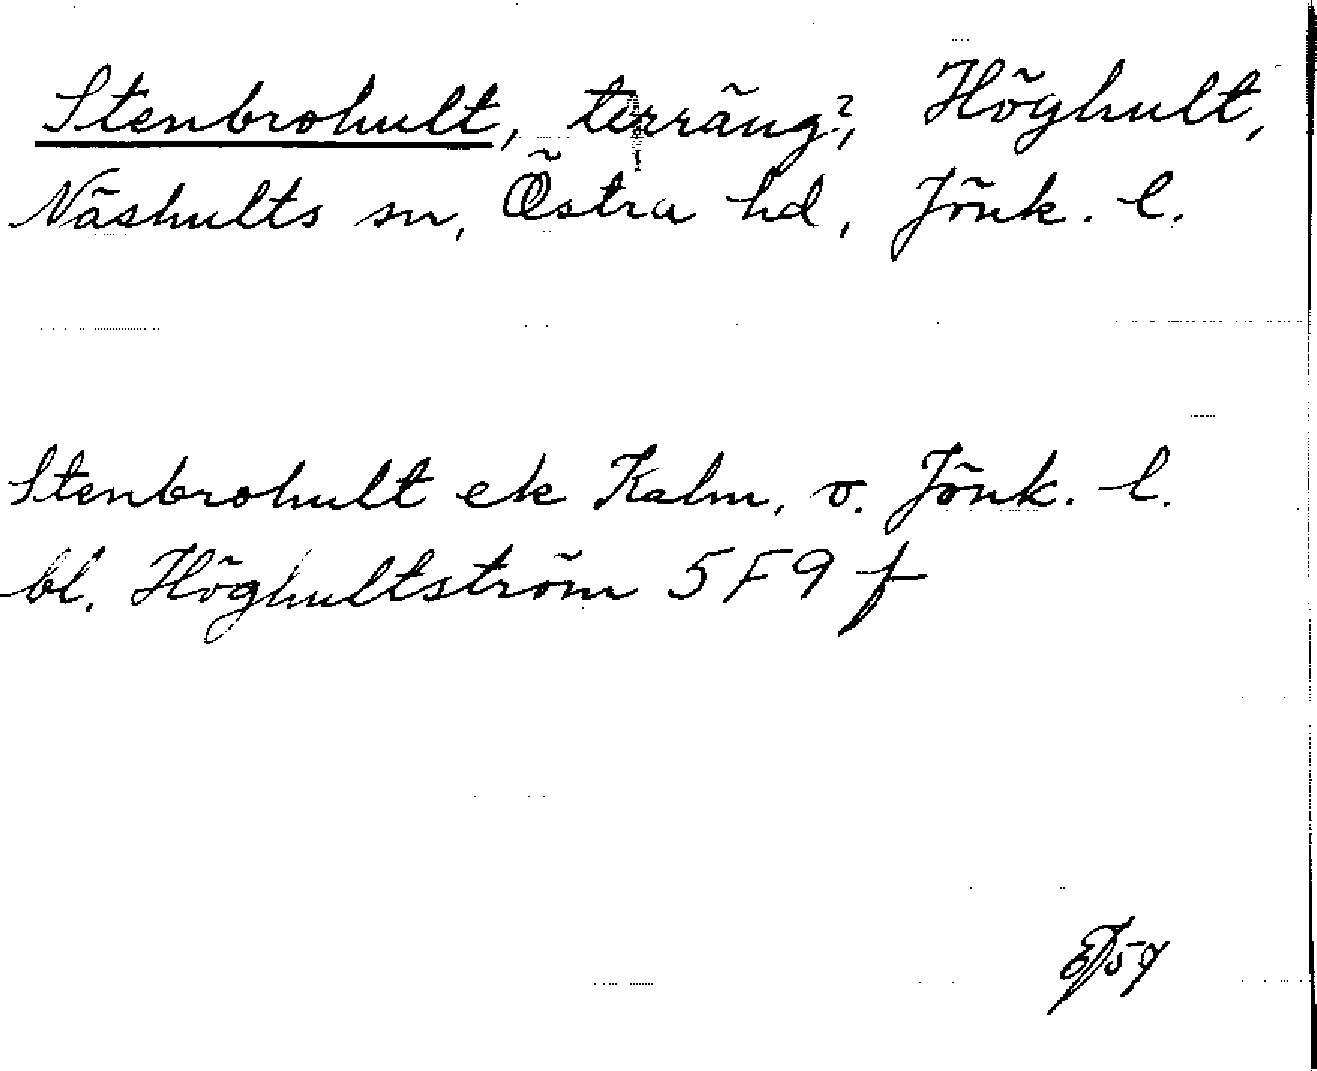 Stenbrohult, terräng?, Höghult,
Näshults sn, Östra hd, Jönk. l.
Stenbrohult ek Kalm. o. Jönk. l.
bl. Höghultström 5F9 f